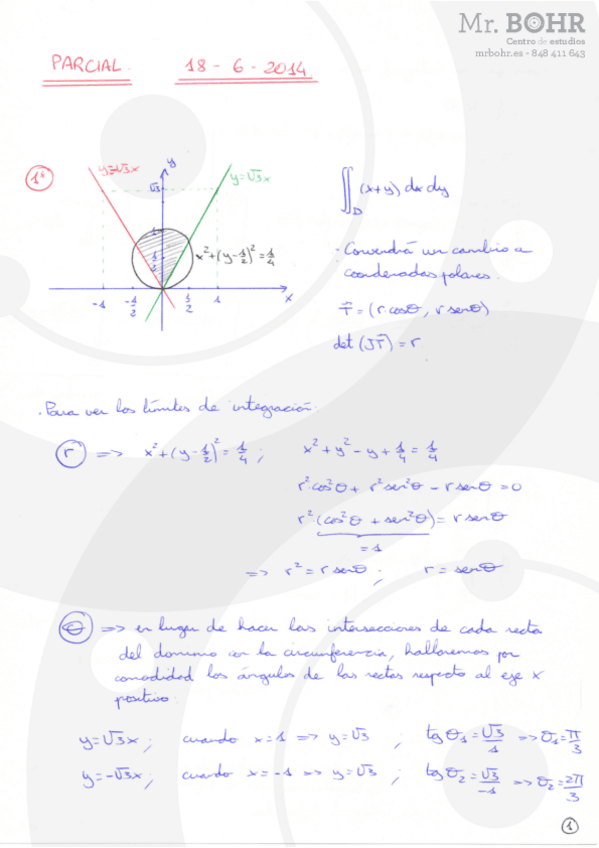 Mr. BOHR
Centro de estudios
mrbohr.es - 848 411 643
PARCIAL. 18 - 6 - 2014
1º
y=-√3x
y
√3
y=√3x
1
1/2
x²+(y-1/2)²=1/4
-1 -1/2 1/2 1 x
∬_D (x+y) dx dy
- Convendrá un cambio a
coordenadas polares.
T̄ = (r cosθ, r senθ)
det (JT̄) = r
. Para ver los límites de integración:
r => x²+(y-1/2)²=1/4 ; x²+y²-y+1/4=1/4
r²cos²θ + r²sen²θ - r senθ = 0
r²(cos²θ + sen²θ) = r senθ
=1
=> r² = r senθ ; r = senθ
θ => en lugar de hacer las intersecciones de cada recta
del dominio con la circunferencia, hallaremos por
comodidad los ángulos de las rectas respecto al eje x
positivo:
y=√3x ; cuando x=1 => y=√3 ; tgθ₁=√3/1 => θ₁=π/3
y=-√3x ; cuando x=-1 => y=√3 ; tgθ₂=√3/-1 => θ₂=2π/3
1